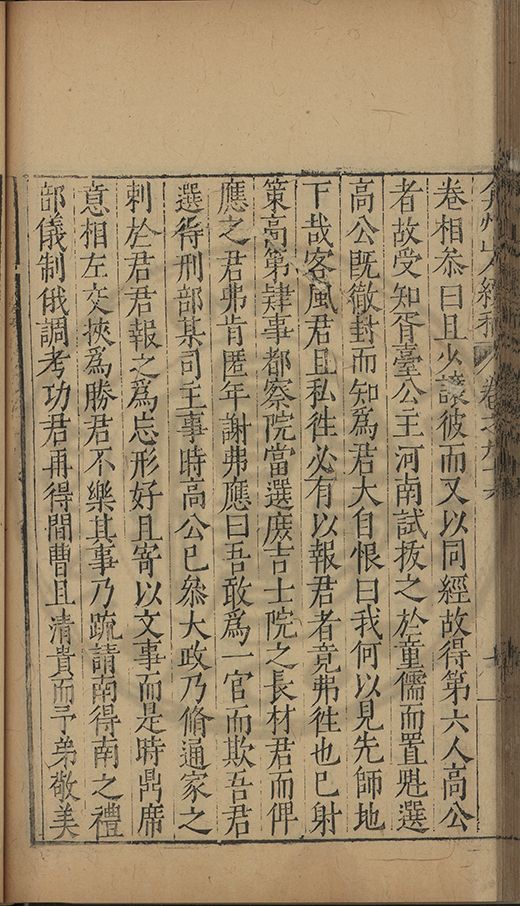 弇州山人續稿 卷之九十六 十一
卷相叅曰且少讓彼而又以同經故得第六人高公
者故受知胥臺公主河南試拔之於童儒而置㽞選
高公既徹封而知爲君大自恨曰我何以見先師地
下哉客風君且私徃必有以報君者竟弗徃也已射
策高第肄事都察院當選庶吉士院之長材君而俾
應之君弗肯匿年謝弗應曰吾敢爲一官而欺吾君
選得刑部某司主事時高公已叅大政乃脩通家之
刺於君君報之爲忘形好且寄以文事而是時鼎席
意相左交挾爲勝君不樂其事乃䟽請南得南之禮
部儀制俄調考功君再得閒曹且清貴而予弟敬美